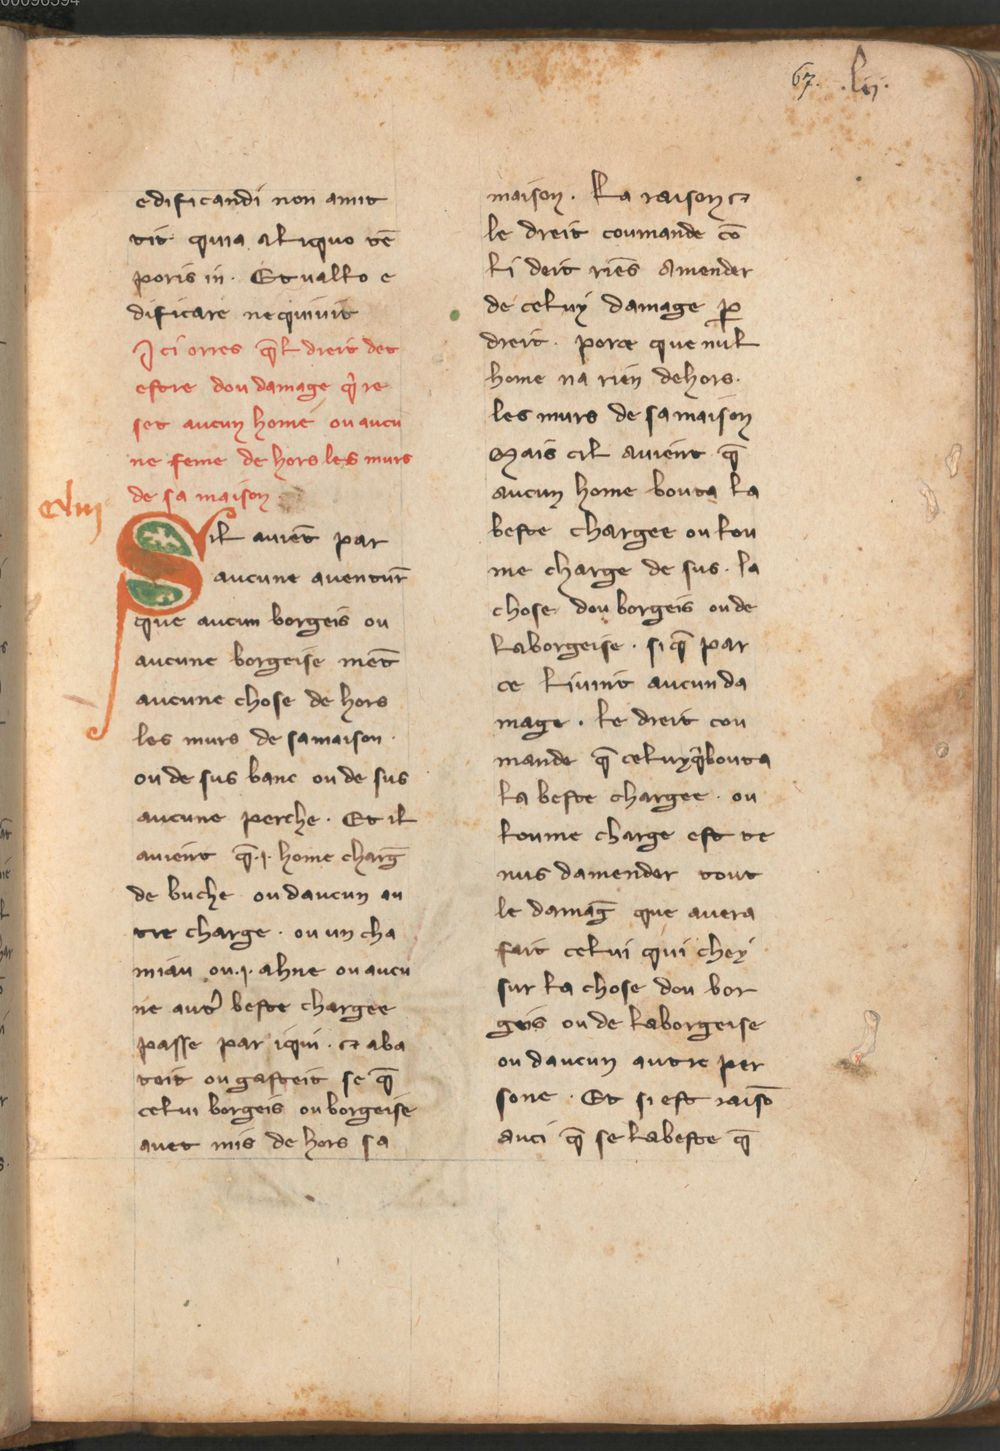 00096394
67. .lij.
edificandi non amit
tit quia aliquo tē
poris in. Et uallo e
dificare nequiuit
Ici orres q̄l dreit det
estre dou damage q̉ re
set aucun home ou aucu
ne feme de hors les murs
de sa maison
cluj
Sil auiēt par
aucune auentur̄
que aucun borgeis ou
aucune borgeise mēt
aucune chose de hors
les murs de sa maison.
ou de sus banc ou de sus
aucune perche. Et il
auient q̄ .j. home charḡ
de buche ou daucun au
tre charge. ou un cha
miau ou .j. ahne ou aucu
ne aut̉ beste chargee
passe par iqui. ⁊ aba
teit ou gasteit se q̄
celui borgeis ou borgeise
auet mis de hors sa
maison. La raison ⁊
le dreit coumande cō
ki deit riēs amender
de celuy damage ꝑ
dreit. porce que nul
home na rien dehors.
les murs de sa maison
Mais cil auient q̄
aucun home bouta la
beste chargee ou lou
me charge de sus. la
chose dou borgeis ou de
la borgeise. si q̄ par
ce li uint aucun da
mage. le dreit cou
mande q̄ celuy q̉ bouta
la beste chargee. ou
loume charge est te
nus damender tout
le damaḡ que auera
fait celui qui chey
sur la chose dou bor
geis ou de la borgeise
ou daucun autre per
sone. Et si est raisō
auci q̄ se la beste q̄